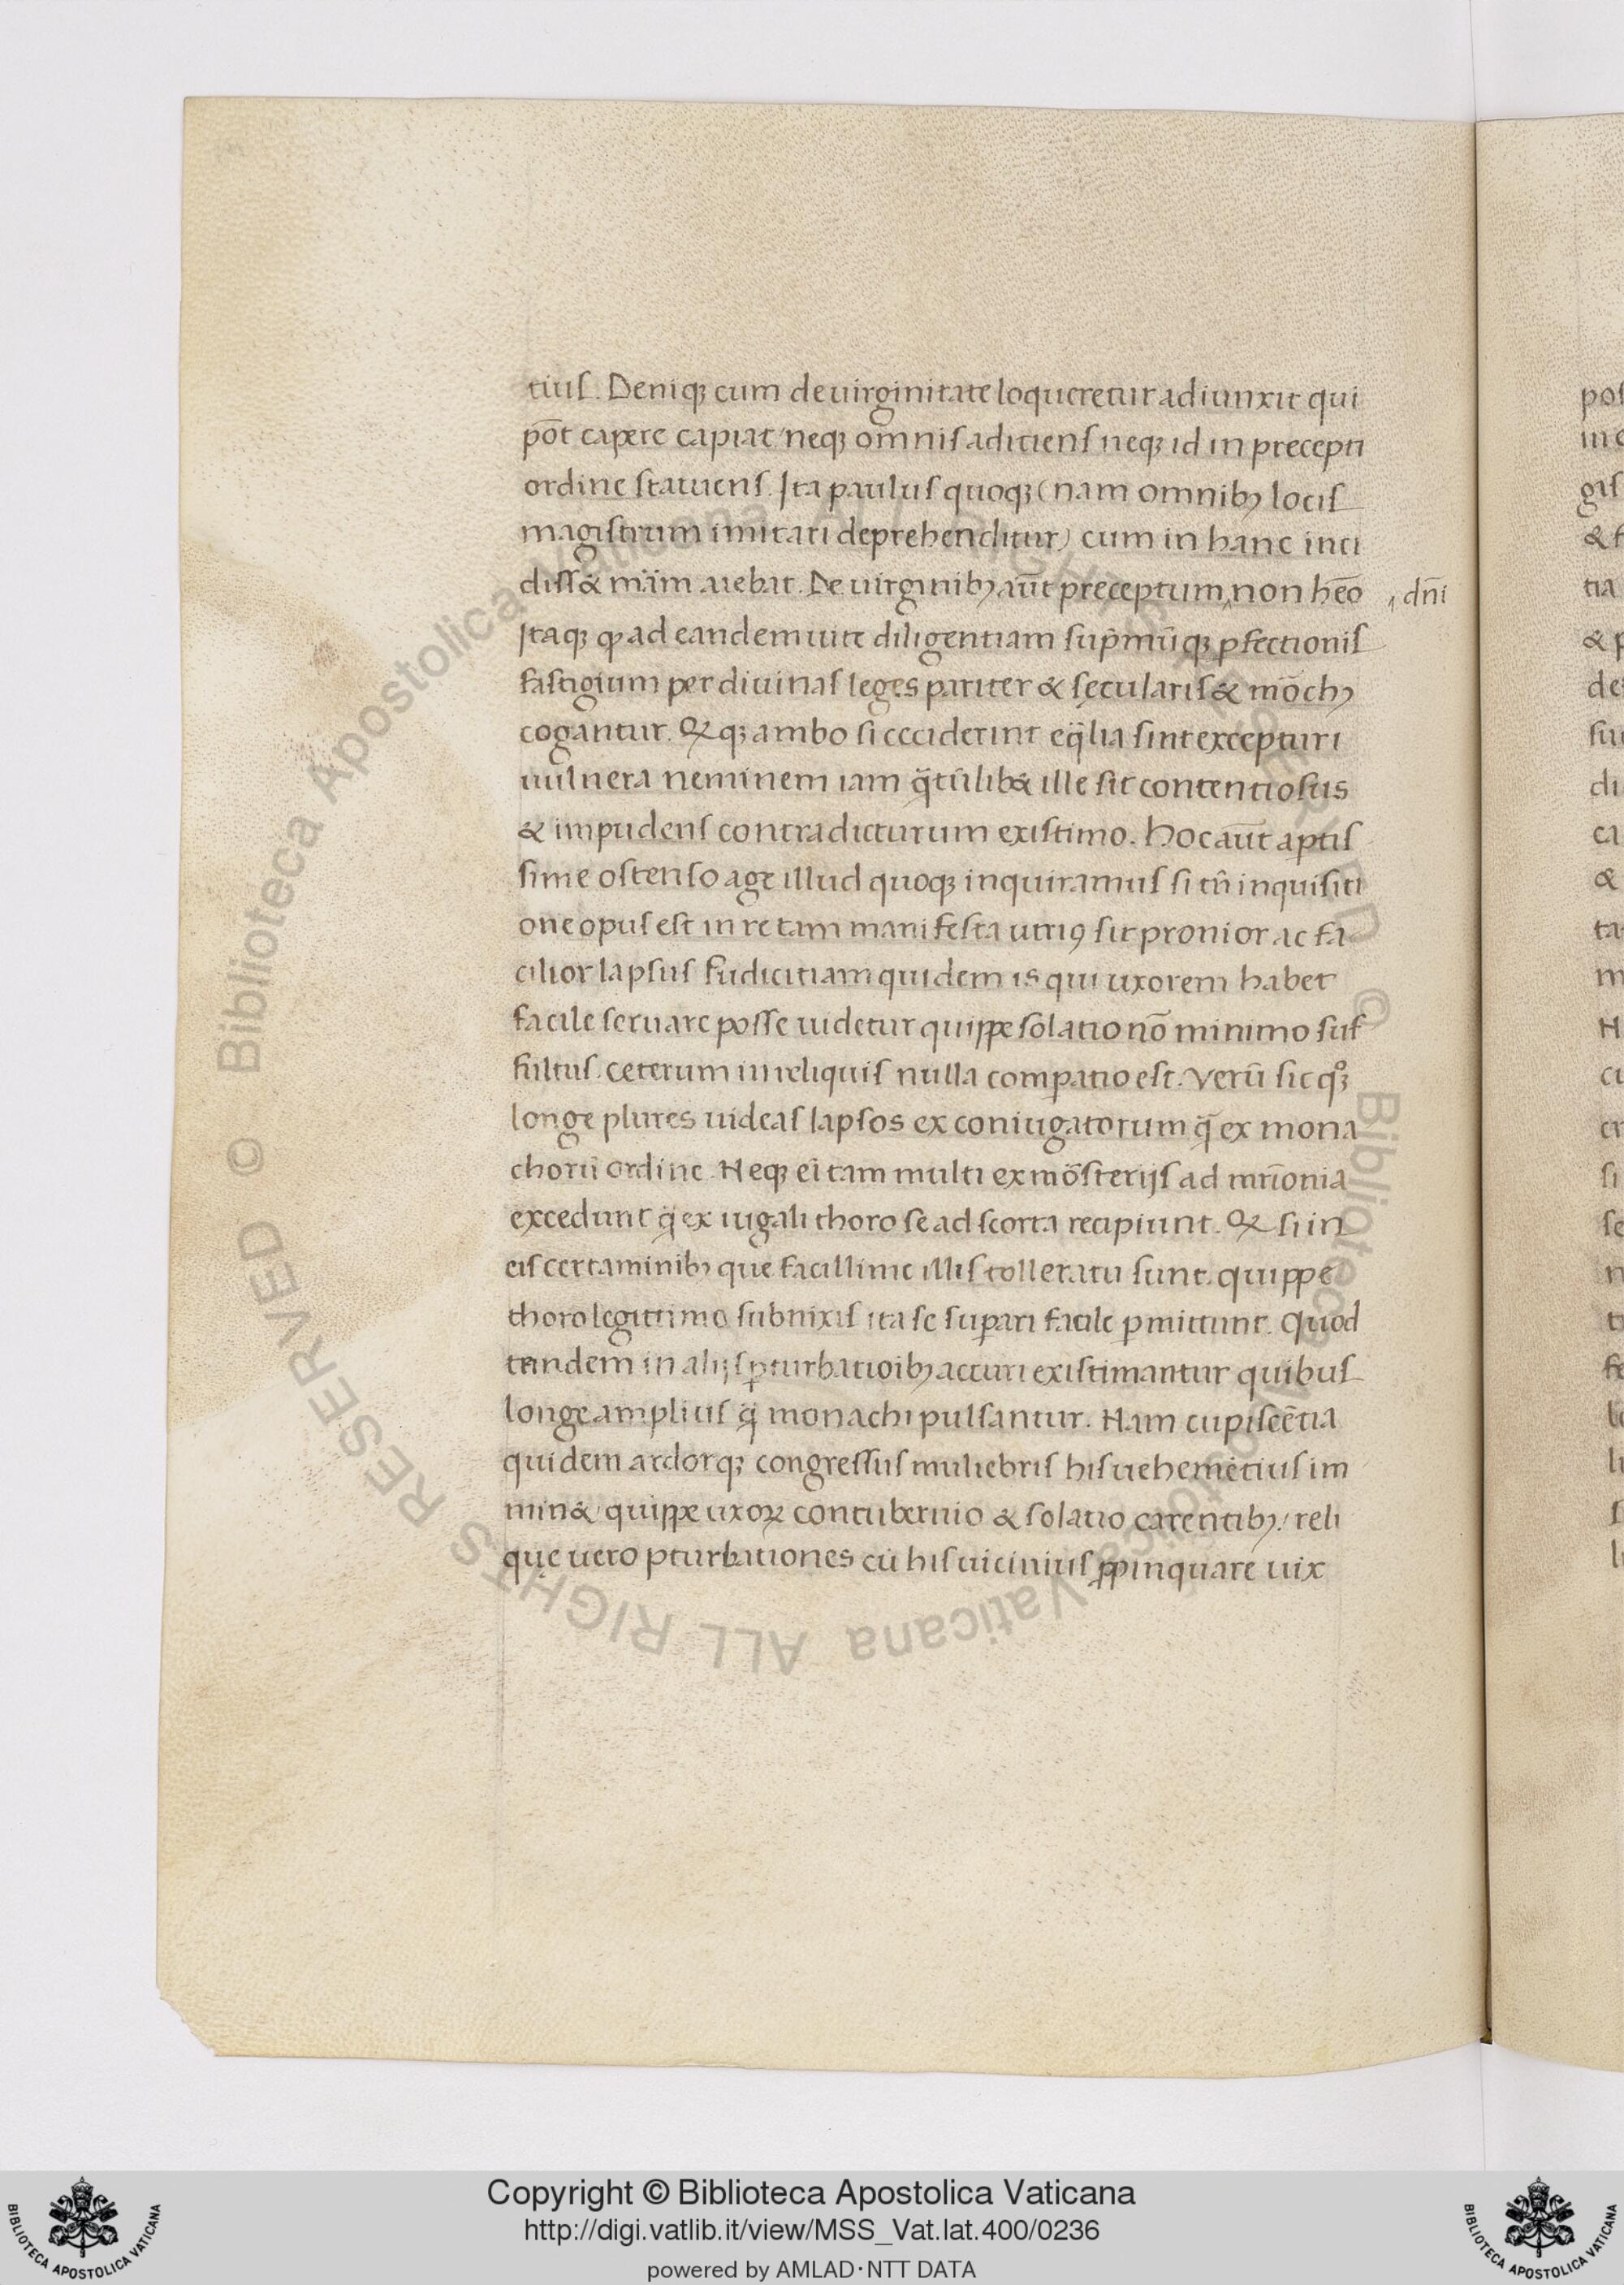 tius. Deniq; cum de uirginitate loqueretur adiunxit qui
pōt capere capiat neq; omnis aditiens neq; id in precepti
ordine statuens. Ita paulus quoq; (nam omnib; locis
magistrum imitari deprehenditur) cum in hanc inci
diss& mãm aiebat. De uirginib; aūt preceptum ‸ non hēo ‸ dn̄i
Itaq; ꝙ ad eandem uite diligentiam sup̄mūq; ꝑfectionis
fastigium per diuinas leges pariter & sęcularis & mōch;
cogantur. Qꝫ q; ambo si ceciderint eq̄lia sint excepturi
uulnera neminem iam q̄tūlib& ille sit contentiosus
& impudens contradicturum existimo. Hoc aūt aptis
sime ostenso age illud quoq; inquiramus si tn̄ inquisiti
one opus est in re tam manifesta utriꝯ sit pronior ac fa
cilior lapsus Pudicitiam quidem is qui uxorem habet
facile seruare posse uidetur quippe solatio nō minimo suf
fultus. Ceterum in reliquis nulla comꝑatio est. Verū sic qͦ;
longe plures uideas lapsos ex coniugatorum q̄ ex mona
chorū ordine. Neq; ei tam multi ex mōsterijs ad mr̄ionia
excedunt q̄ ex iugali thoro se ad scorta recipiunt. Qꝫ si in
eis certaminib; que facillime illis tolleratu sunt. quippe
thoro legittimo subnixis ita se suꝑari facile ꝑmittunt. Quod
tandem in alijs ꝑturbatioīb; accuri existimantur quibus
longe amplius q̄ monachi pulsantur. Nam cupiscētia
quidem ardorq; congressus muliebris his uehemētius im
min& quippe uxoꝝ contubernio & solatio carentib; reli
quę uero ꝑturbationes cū his uicinius ꝓpinquare uix
Copyright © Biblioteca Apostolica Vaticana
http://digi.vatlib.it/view/MSS_Vat.lat.400/0236
powered by AMLAD·NTT DATA